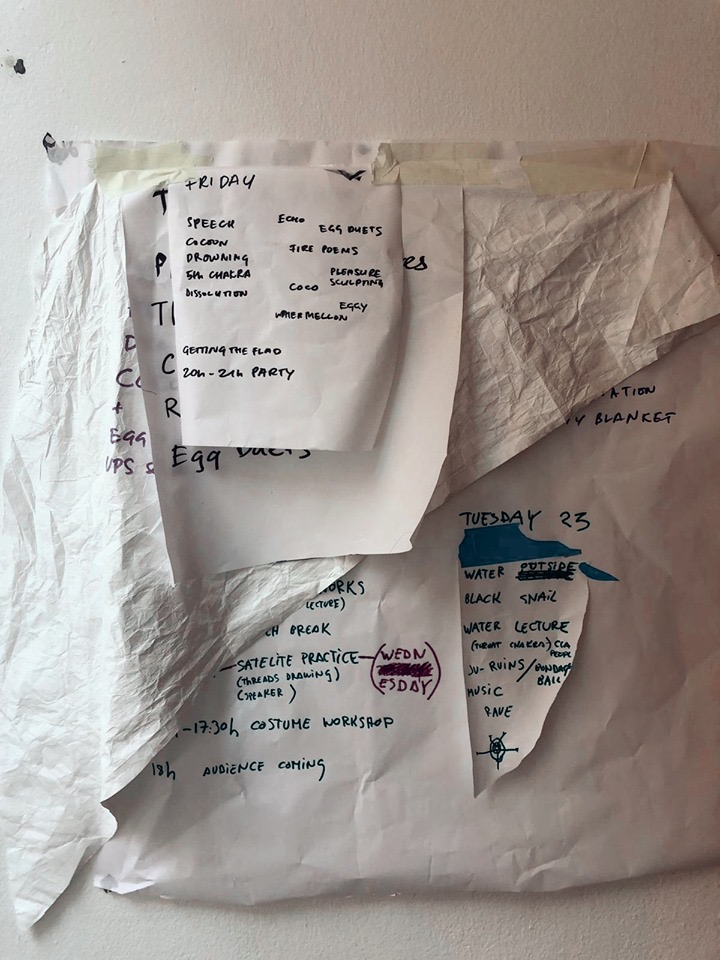 FRIDAY
SPEECH
COCOON
DROWNING
5th CHAKRA
DISSOLUTION
ECHO
EGG DUETS
FIRE POEMS
PLEASURE
SCULPTING
COCO
EGGY
WATERMELLON
GETTING THE FLAD
20h-21h PARTY
Egg Duets
+
EGG
BLANKET
TUESDAY 23
WATER OUTSIDE
BLACK SNAIL
WATER LECTURE
(THROAT CHAKRA)
JU-RUINS/BONDAGE
BALL
MUSIC
RAVE
LECTURE)
BREAK
SATELITE PRACTICE
(THREADS DRAWING)
(SPEAKER)
(WEDN
ESDAY)
-17:30h COSTUME WORKSHOP
18h AUDIENCE COMING